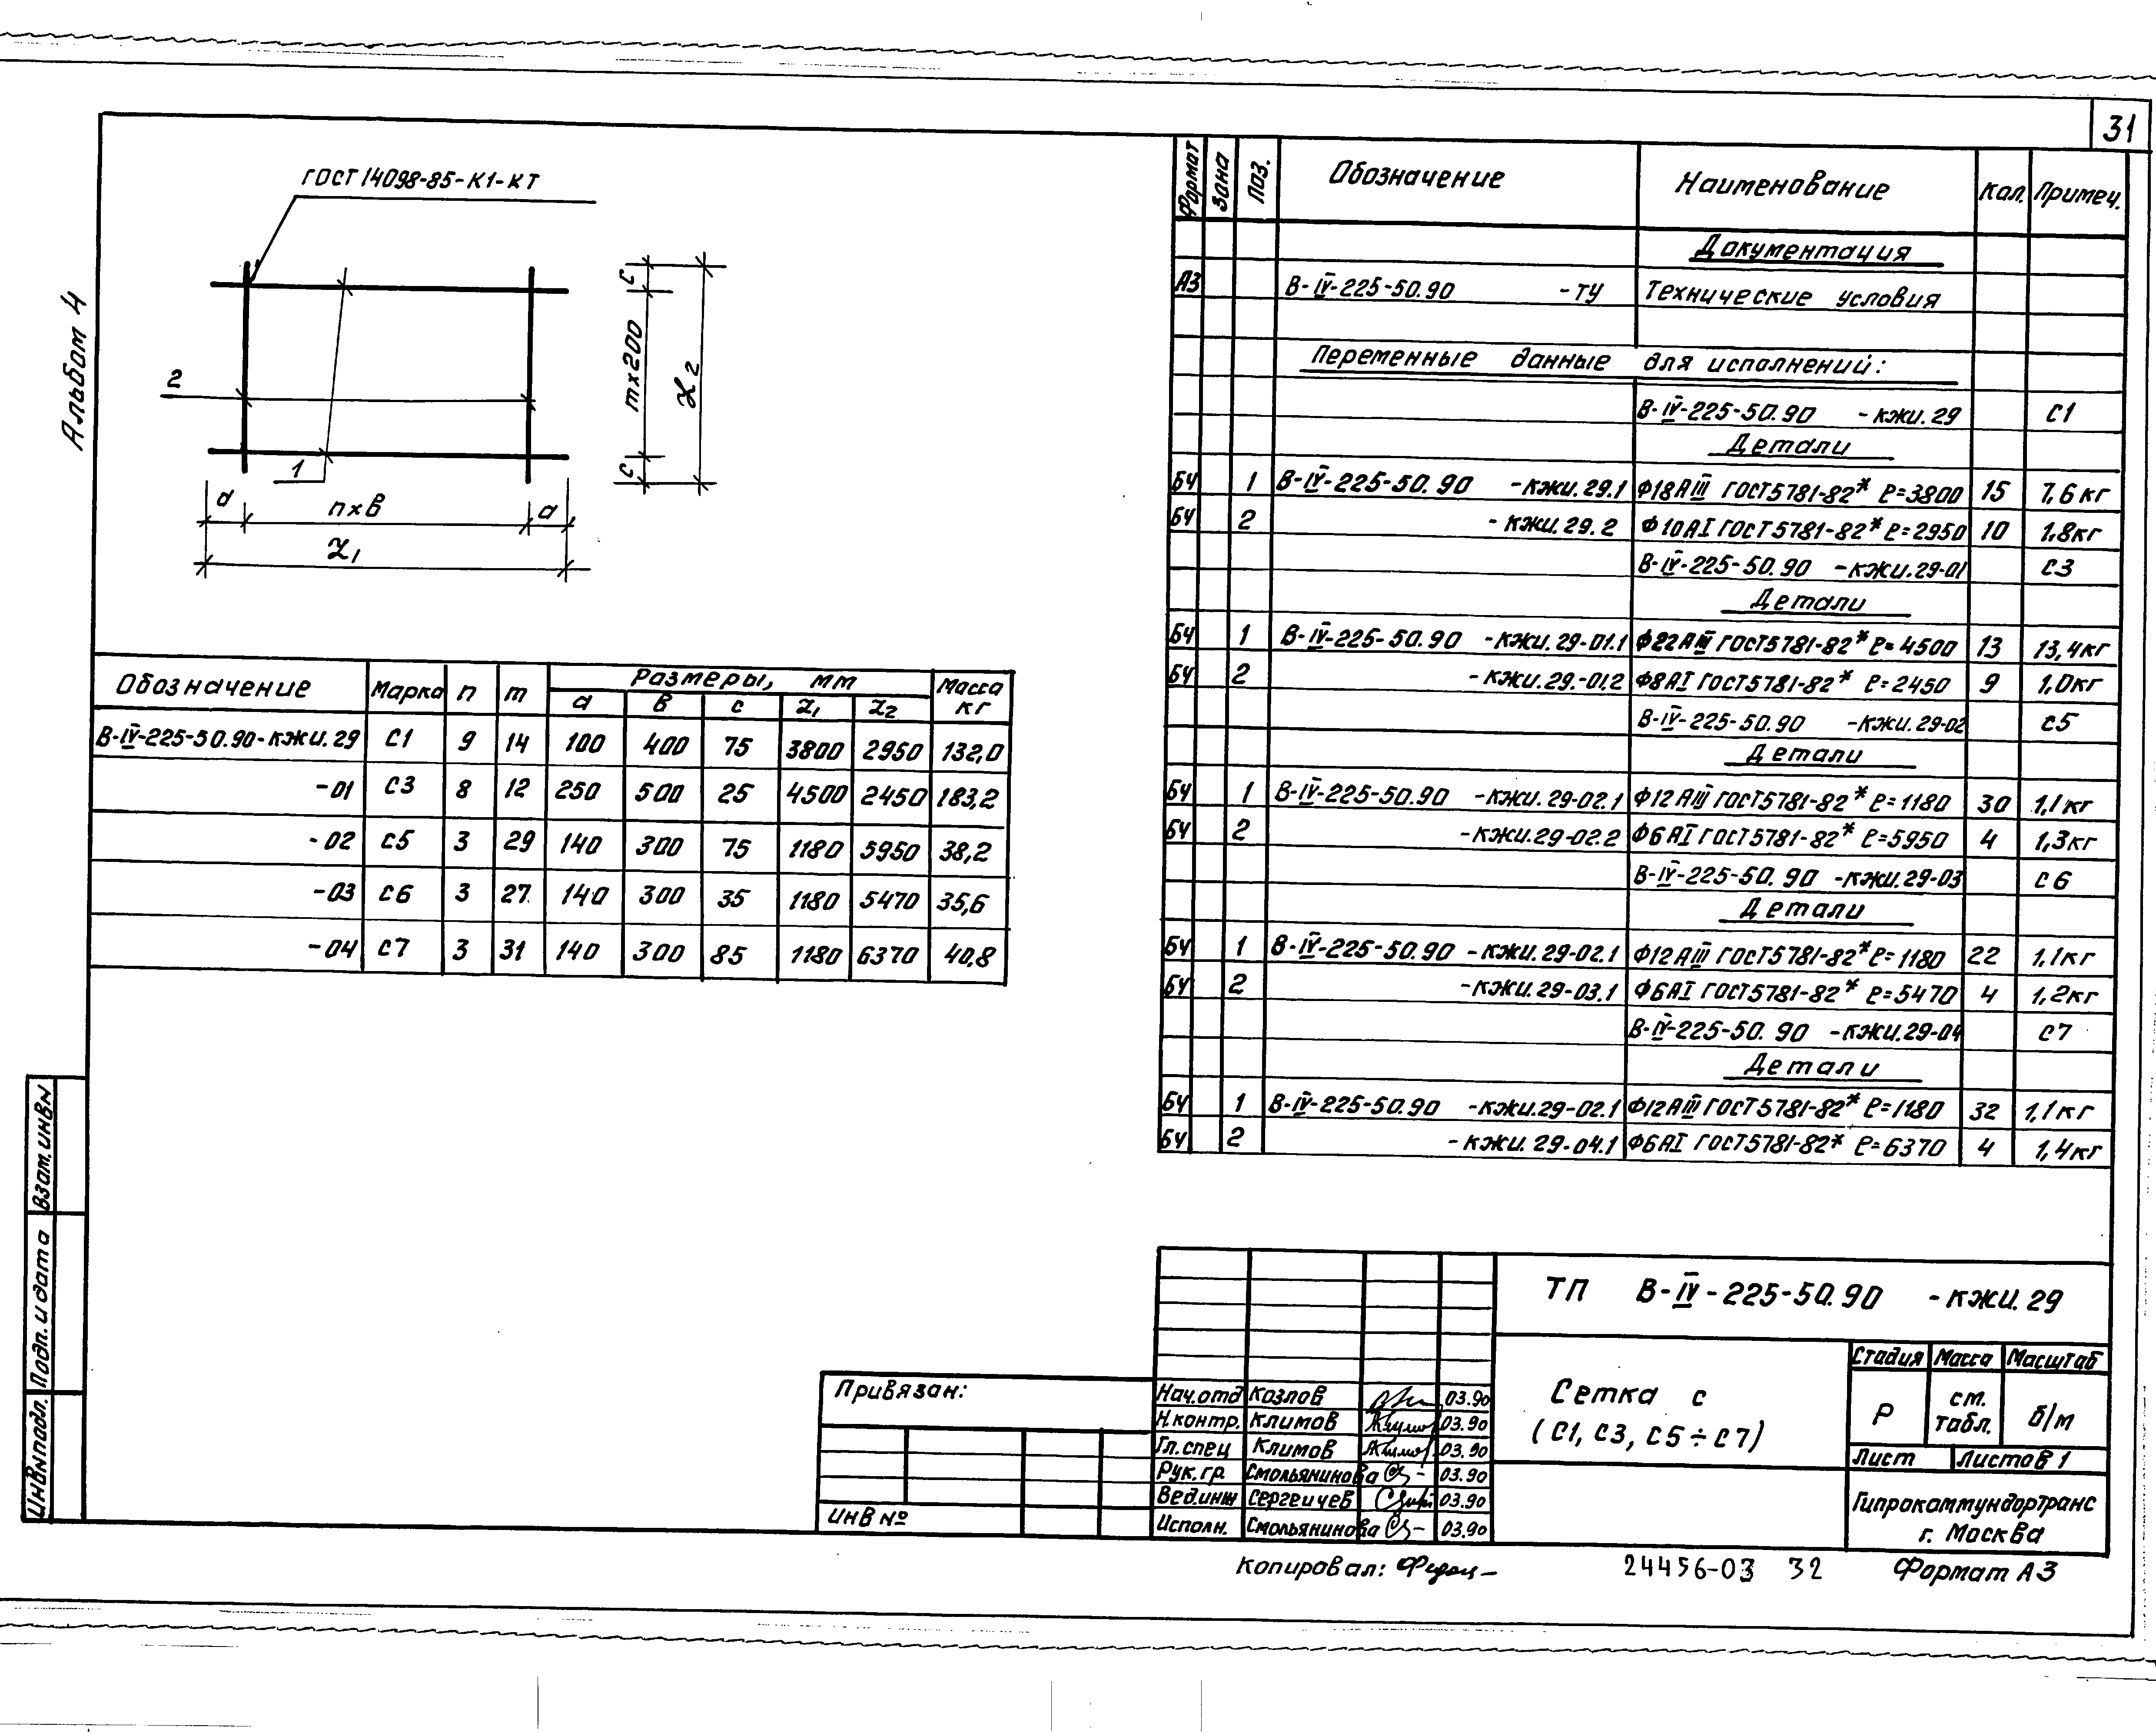 31
Альбом 4
ГОСТ 14098-85-К1-КТ
2
1
с
m×200
с
L2
а
n×в
а
L1
Обозначение Марка n m Размеры, мм Масса кг
а в с L1 L2
В-IV-225-50.90-КЖИ.29 С1 9 14 100 400 75 3800 2950 132,0
-01 С3 8 12 250 500 25 4500 2450 183,2
-02 С5 3 29 140 300 75 1180 5950 38,2
-03 С6 3 27 140 300 35 1180 5470 35,6
-04 С7 3 31 140 300 85 1180 6370 40,8
Формат Зона Поз. Обозначение Наименование Кол. Примеч.
Документация
А3 В-IV-225-50.90 -ТУ Технические условия
Переменные данные для исполнений:
В-IV-225-50.90 -КЖИ.29 С1
Детали
БЧ 1 В-IV-225-50.90 -КЖИ.29.1 Ф18АIII ГОСТ5781-82* ℓ=3800 15 7,6 кг
БЧ 2 -КЖИ.29.2 Ф10АI ГОСТ5781-82* ℓ=2950 10 1,8кг
В-IV-225-50.90 -КЖИ.29-01 С3
Детали
БЧ 1 В-IV-225-50.90 -КЖИ.29-01.1 Ф22АIII ГОСТ5781-82* ℓ=4500 13 13,4кг
БЧ 2 -КЖИ.29.-01.2 Ф8АI ГОСТ5781-82* ℓ=2450 9 1,0кг
В-IV-225-50.90 -КЖИ.29-02 С5
Детали
БЧ 1 В-IV-225-50.90 -КЖИ.29-02.1 Ф12АIII ГОСТ5781-82* ℓ=1180 30 1,1кг
БЧ 2 -КЖИ.29-02.2 Ф6АI ГОСТ5781-82* ℓ=5950 4 1,3кг
В-IV-225-50.90 -КЖИ.29-03 С6
Детали
БЧ 1 В-IV-225-50.90 -КЖИ.29-02.1 Ф12АIII ГОСТ5781-82* ℓ=1180 22 1,1кг
БЧ 2 -КЖИ.29-03.1 Ф6АI ГОСТ5781-82* ℓ=5470 4 1,2кг
В-IV-225-50.90 -КЖИ.29-04 С7
Детали
БЧ 1 В-IV-225-50.90 -КЖИ.29-02.1 Ф12АIII ГОСТ5781-82* ℓ=1180 32 1,1кг
БЧ 2 -КЖИ.29-04.1 Ф6АI ГОСТ5781-82* ℓ=6370 4 1,4кг
Взам.инв№
Подп. и дата
Инв№подл.
Привязан:
Инв №
Нач.отд Козлов 03.90
Н.контр. Климов 03.90
Гл.спец Климов 03.90
Рук.гр. Смольянинова 03.90
Вед.инж Сергеичев 03.90
Исполн. Смольянинова 03.90
ТП В-IV-225-50.90 -КЖИ.29
Сетка С
(С1, С3, С5÷С7)
Стадия Масса Масштаб
Р см. табл. б/м
Лист Листов 1
Гипрокоммундортранс
г. Москва
Копировал:
24456-03 32
Формат А3